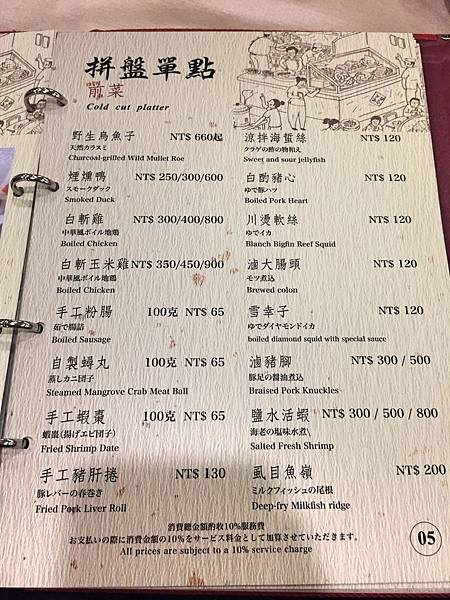 拼盤單點
前菜
Cold cut platter
野生烏魚子 NT$ 660起
天然カラスミ
Charcoal-grilled Wild Mullet Roe
煙燻鴨 NT$ 250/300/600
スモークダック
Smoked Duck
白斬雞 NT$ 300/400/800
中華風ボイル地鶏
Boiled Chicken
白斬玉米雞 NT$ 350/450/900
中華風ボイル地鶏
Boiled Chicken
手工粉腸 100克 NT$ 65
茹で腸詰
Boiled Sausage
自製蟳丸 100克 NT$ 65
蒸しカニ団子
Steamed Mangrove Crab Meat Ball
手工蝦棗 100克 NT$ 65
蝦棗(揚げエビ団子)
Fried Shrimp Date
手工豬肝捲 NT$ 130
豚レバーの春巻き
Fried Pork Liver Roll
涼拌海蜇絲 NT$ 120
クラゲの酢の物和え
Sweet and sour jellyfish
白酌豬心 NT$ 120
ゆで豚ハツ
Boiled Pork Heart
川燙軟絲 NT$ 120
ゆでイカ
Blanch Bigfin Reef Squid
滷大腸頭 NT$ 120
モツ煮込
Brewed colon
雪幸子 NT$ 120
ゆでダイヤモンドイカ
boiled diamond squid with special sauce
滷豬腳 NT$ 300 / 500
豚足の醤油煮込
Braised Pork Knuckles
鹽水活蝦 NT$ 300 / 500 / 800
海老の塩味水煮
Salted Fresh Shrimp
虱目魚嶺 NT$ 200
ミルクフィッシュの尾根
Deep-fry Milkfish ridge
消費總金額酌收10%服務費
お支払いの際に消費金額の10%をサービス料金として加算させていただきます。
All prices are subject to a 10% service charge
05